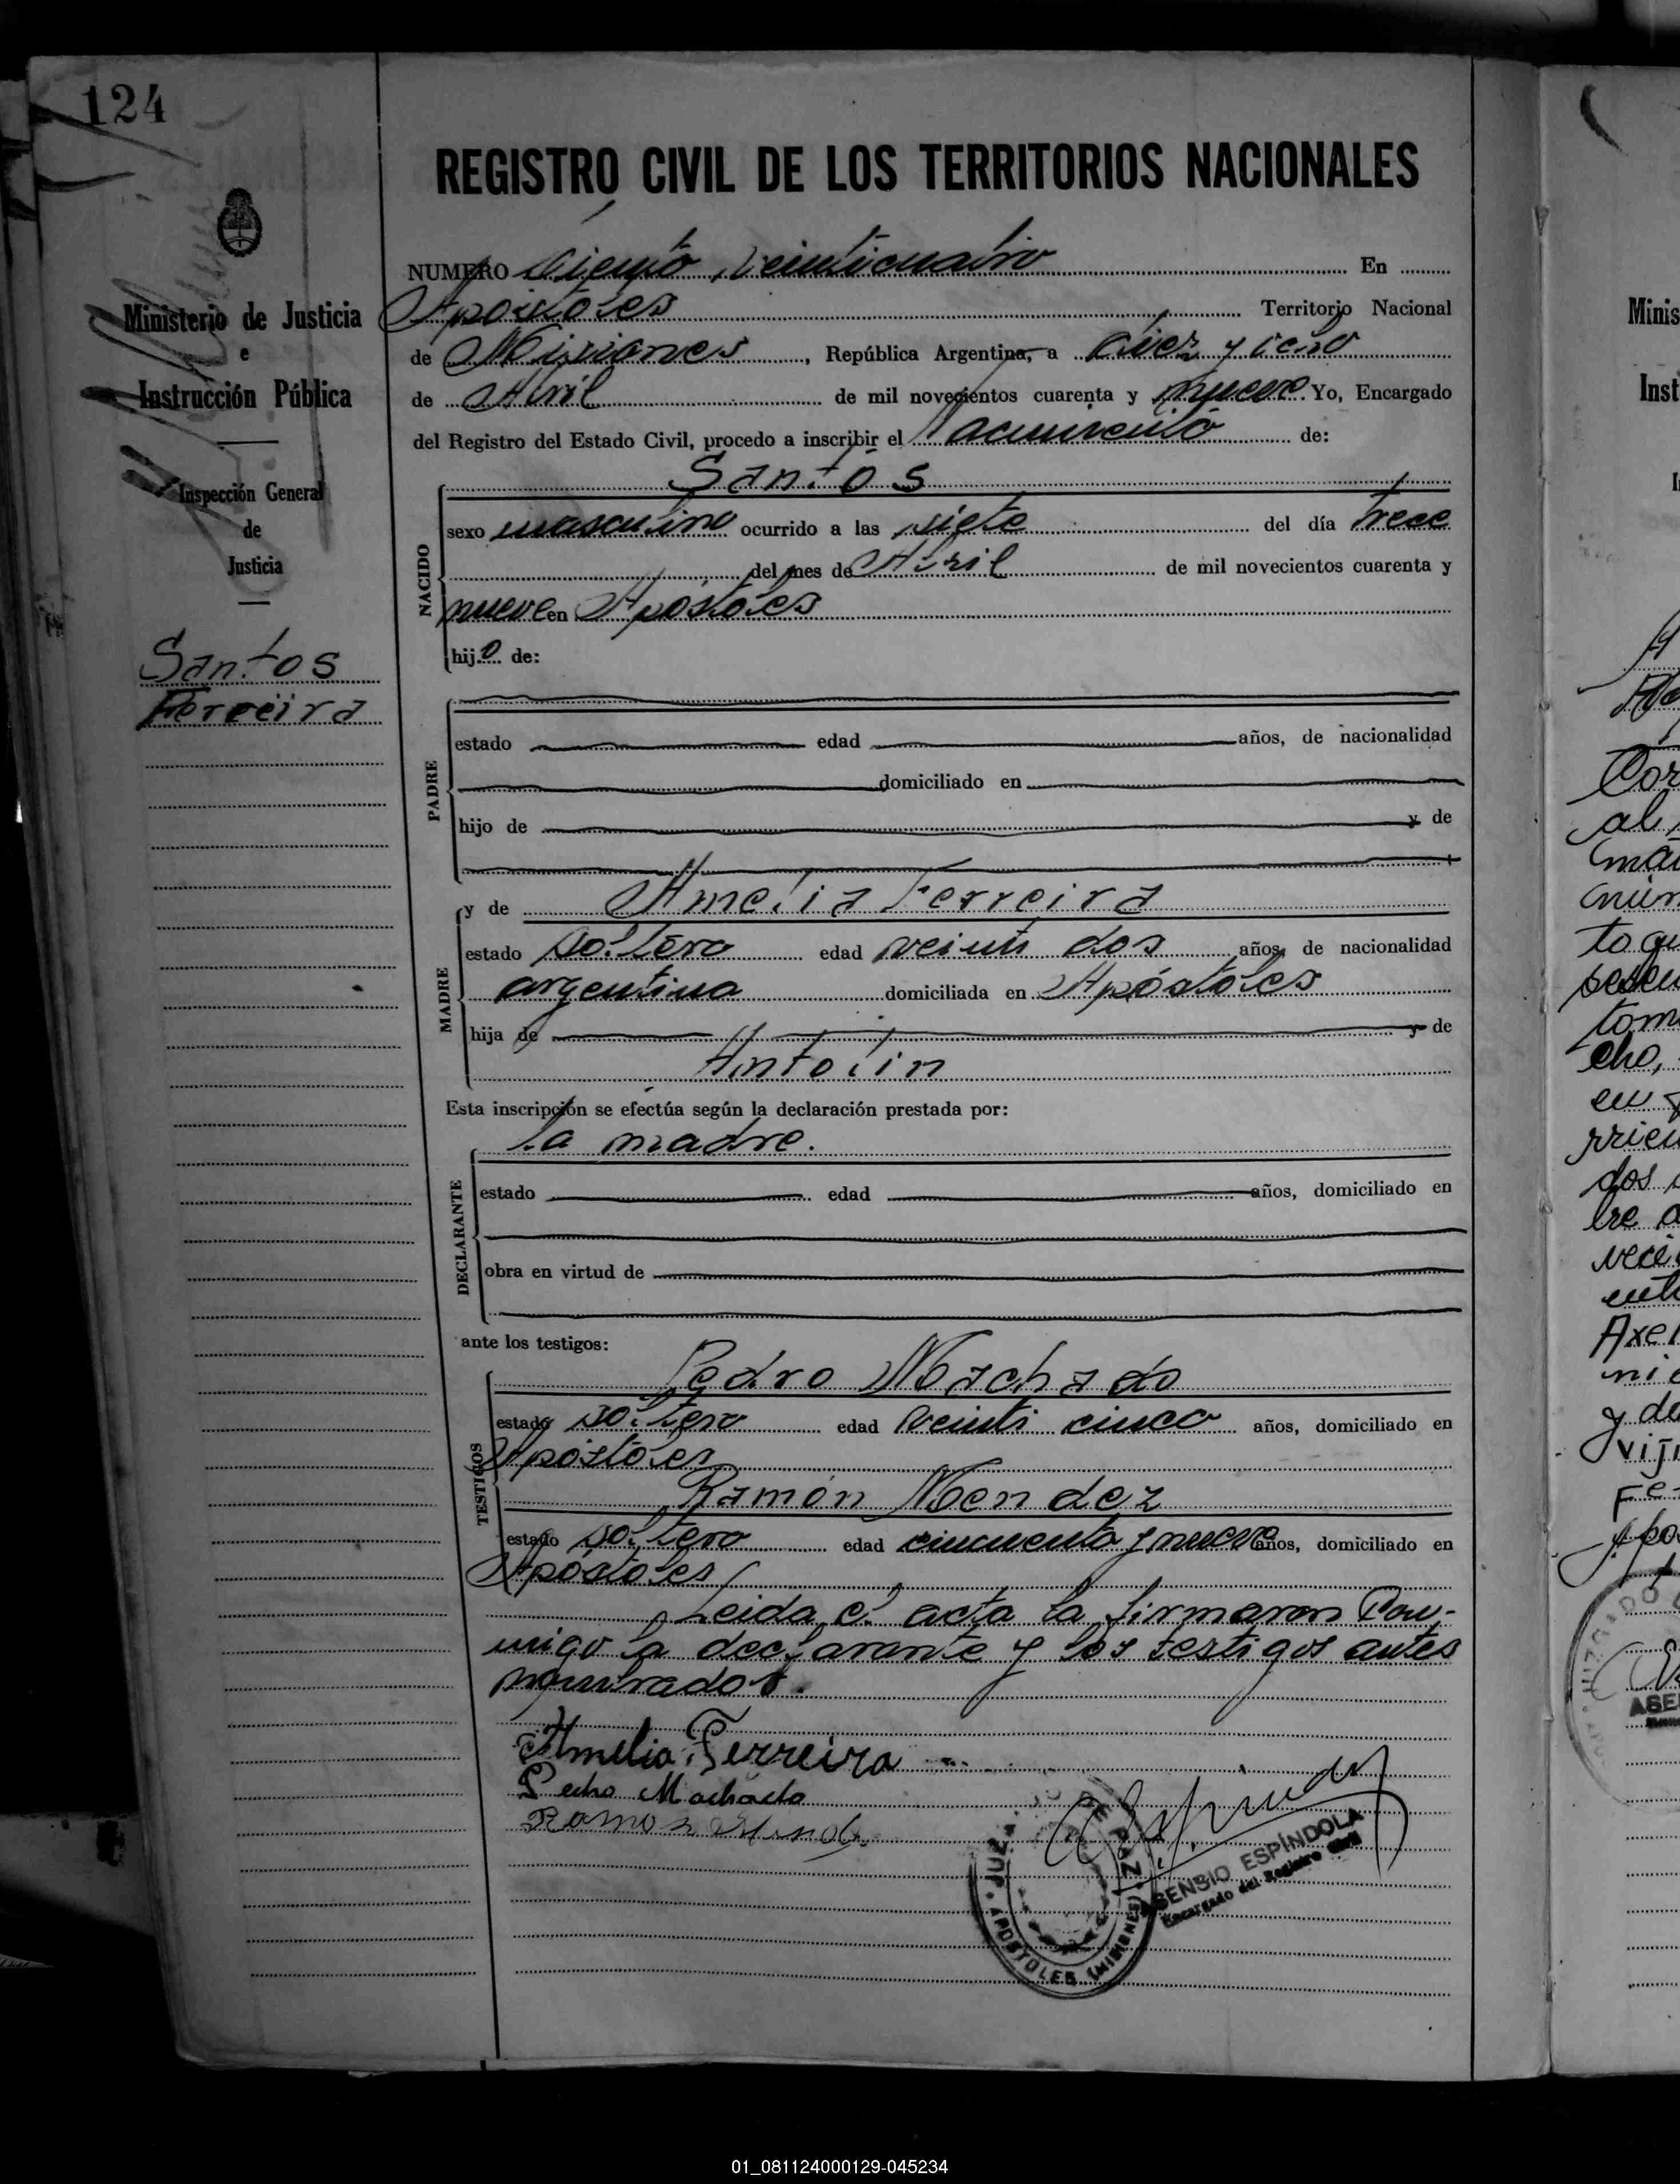 124
REGISTRO CIVIL DE LOS TERRITORIOS NACIONALES
NUMERO Ciento veinticuatro En
Apóstoles Territorio Nacional
de Misiones, República Argentina, a diez y ocho
de Abril de mil novecientos cuarenta y nueve Yo, Encargado
del Registro del Estado Civil, procedo a inscribir el Nacimiento de:
Ministerio de Justicia
e
Instrucción Pública
Inspección General
de
Justicia
Santos
Ferreira
NACIDO
Santos
sexo masculino ocurrido a las siete del día trece
del mes de Abril de mil novecientos cuarenta y
nueve en Apóstoles
hijo de:
PADRE
estado edad años, de nacionalidad
domiciliado en
hijo de y de
MADRE
y de Amelia Ferreira
estado soltera edad veinti dos años, de nacionalidad
argentina domiciliada en Apóstoles
hija de y de
Antolin
Esta inscripción se efectúa según la declaración prestada por:
la madre.
DECLARANTE
estado edad años, domiciliado en
obra en virtud de
ante los testigos:
TESTIGOS
Pedro Machado
estado soltero edad veinti cinco años, domiciliado en
Apóstoles
Ramón Mendez
estado soltero edad cincuenta y nueve años, domiciliado en
Apóstoles
Leida el acta la firmaron Con-
migo la declarante y los testigos antes
nombrados.
Amelia Ferreira
Pedro Machado
Ramon
JUZ DE PAZ
APOSTOLES (MISIONES)
ASENSIO ESPÍNDOLA
Encargado del Registro Civil
Minis
Inst
al
to qu
tom
cho,
en
dos
Axel
ni
y de
01_081124000129-045234